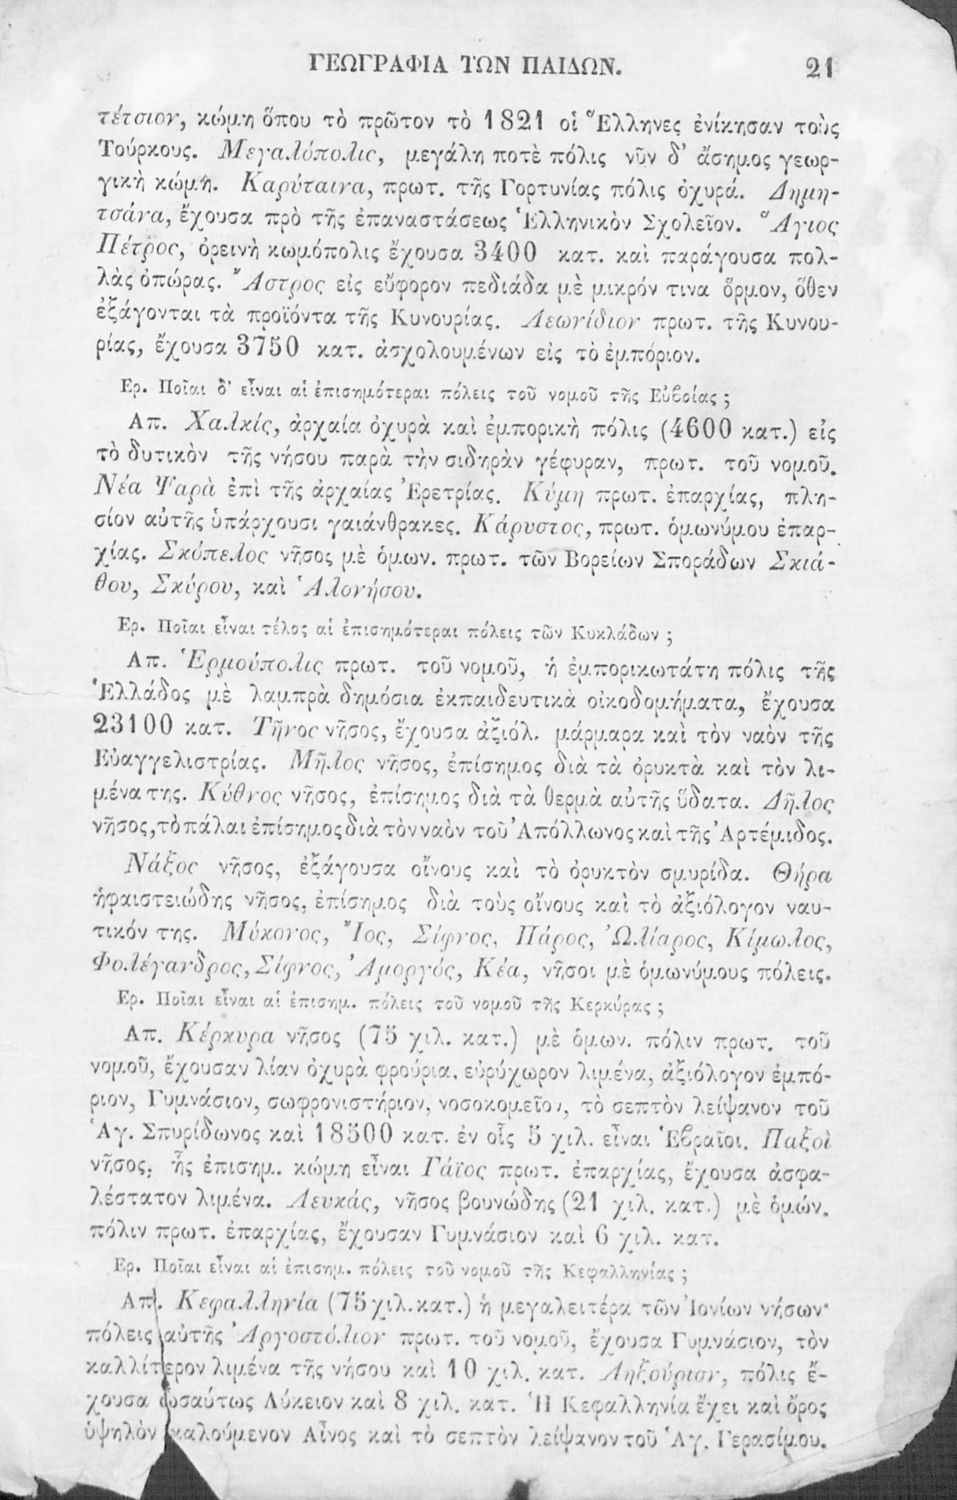 ΓΕΩΓΡΑΦΙΑ ΤΩΝ ΠΑΙΔΩΝ. 21
τέτσιον, κώμη ὅπου τὸ πρῶτον τὸ 1821 οἱ Ἕλληνες ἐνίκησαν τοὺς
Τούρκους. Μεγαλόπολις, μεγάλη ποτὲ πόλις νῦν δ' ἄσημος γεωρ-
γικὴ κώμη. Καρύταινα, πρωτ. τῆς Γορτυνίας πόλις ὀχυρά. Δημη-
τσάνα, ἔχουσα πρὸ τῆς ἐπαναστάσεως Ἑλληνικὸν Σχολεῖον. Ἅγιος
Πέτρος, ὀρεινὴ κωμόπολις ἔχουσα 3400 κατ. καὶ παράγουσα πολ-
λὰς ὀπώρας. Ἄστρος εἰς εὔφορον πεδιάδα μὲ μικρόν τινα ὅρμον, ὅθεν
ἐξάγονται τὰ προϊόντα τῆς Κυνουρίας. Λεωνίδιον πρωτ. τῆς Κυνου-
ρίας, ἔχουσα 3750 κατ. ἀσχολουμένων εἰς τὸ ἐμπόριον.
Ερ. Ποῖαι δ' εἶναι αἱ ἐπισημότεραι πόλεις τοῦ νομοῦ τῆς Εὐβοίας ;
Απ. Χαλκίς, ἀρχαία ὀχυρὰ καὶ ἐμπορικὴ πόλις (4600 κατ.) εἰς
τὸ δυτικὸν τῆς νήσου παρὰ τὴν σιδηρὰν γέφυραν, πρωτ. τοῦ νομοῦ.
Νέα Ψαρὰ ἐπὶ τῆς ἀρχαίας Ἐρετρίας. Κύμη πρωτ. ἐπαρχίας, πλη-
σίον αὐτῆς ὑπάρχουσι γαιάνθρακες. Κάρυστος, πρωτ. ὁμωνύμου ἐπαρ-
χίας. Σκόπελος νῆσος μὲ ὁμων. πρωτ. τῶν Βορείων Σποράδων Σκιά-
θου, Σκύρου, καὶ Ἁλονήσου.
Ερ. Ποῖαι εἶναι τέλος αἱ ἐπισημότεραι πόλεις τῶν Κυκλάδων ;
Απ. Ἑρμούπολις πρωτ. τοῦ νομοῦ, ἡ ἐμπορικωτάτη πόλις τῆς
Ἑλλάδος μὲ λαμπρὰ δημόσια ἐκπαιδευτικὰ οἰκοδομήματα, ἔχουσα
23100 κατ. Τῆνος νῆσος, ἔχουσα ἀξιόλ. μάρμαρα καὶ τὸν ναὸν τῆς
Εὐαγγελιστρίας. Μῆλος νῆσος, ἐπίσημος διὰ τὰ ὀρυκτὰ καὶ τὸν λι-
μένα της. Κύθνος νῆσος, ἐπίσημος διὰ τὰ θερμὰ αὐτῆς ὕδατα. Δῆλος
νῆσος, τὸ πάλαι ἐπίσημος διὰ τὸν ναὸν τοῦ Ἀπόλλωνος καὶ τῆς Ἀρτέμιδος.
Νάξος νῆσος, ἐξάγουσα οἴνους καὶ τὸ ὀρυκτὸν σμυρίδα. Θήρα
ἡφαιστειώδης νῆσος, ἐπίσημος διὰ τοὺς οἴνους καὶ τὸ ἀξιόλογον ναυ-
τικόν της. Μύκονος, Ἴος, Σίφνος, Πάρος, Ὠλίαρος, Κίμωλος,
Φολέγανδρος, Σίφνος, Ἀμοργός, Κέα, νῆσοι μὲ ὁμωνύμους πόλεις.
Ερ. Ποῖαι εἶναι αἱ ἐπισημ. πόλεις τοῦ νομοῦ τῆς Κερκύρας ;
Απ. Κέρκυρα νῆσος (75 χιλ. κατ.) μὲ ὁμων. πόλιν πρωτ. τοῦ
νομοῦ, ἔχουσαν λίαν ὀχυρὰ φρούρια, εὐρύχωρον λιμένα, ἀξιόλογον ἐμπό-
ριον, Γυμνάσιον, σωφρονιστήριον, νοσοκομεῖον, τὸ σεπτὸν λείψανον τοῦ
Ἁγ. Σπυρίδωνος καὶ 18500 κατ. ἐν οἷς 5 χιλ. εἶναι Ἑβραῖοι. Παξοὶ
νῆσος, ἧς ἐπισημ. κώμη εἶναι Γάϊος πρωτ. ἐπαρχίας, ἔχουσα ἀσφα-
λέστατον λιμένα. Λευκάς, νῆσος βουνώδης (21 χιλ. κατ.) μὲ ὁμών.
πόλιν πρωτ. ἐπαρχίας, ἔχουσαν Γυμνάσιον καὶ 6 χιλ. κατ.
Ερ. Ποῖαι εἶναι αἱ ἐπισημ. πόλεις τοῦ νομοῦ τῆς Κεφαλληνίας ;
Απ. Κεφαλληνία (75 χιλ. κατ.) ἡ μεγαλειτέρα τῶν Ἰονίων νήσων·
πόλεις αὐτῆς Ἀργοστόλιον πρωτ. τοῦ νομοῦ, ἔχουσα Γυμνάσιον, τὸν
καλλίτερον λιμένα τῆς νήσου καὶ 10 χιλ. κατ. Ληξούριον, πόλις ἔ-
χουσα ὡσαύτως Λύκειον καὶ 8 χιλ. κατ. Ἡ Κεφαλληνία ἔχει καὶ ὄρος
ὑψηλὸν καλούμενον Αἶνος καὶ τὸ σεπτὸν λείψανον τοῦ Ἁγ. Γερασίμου.